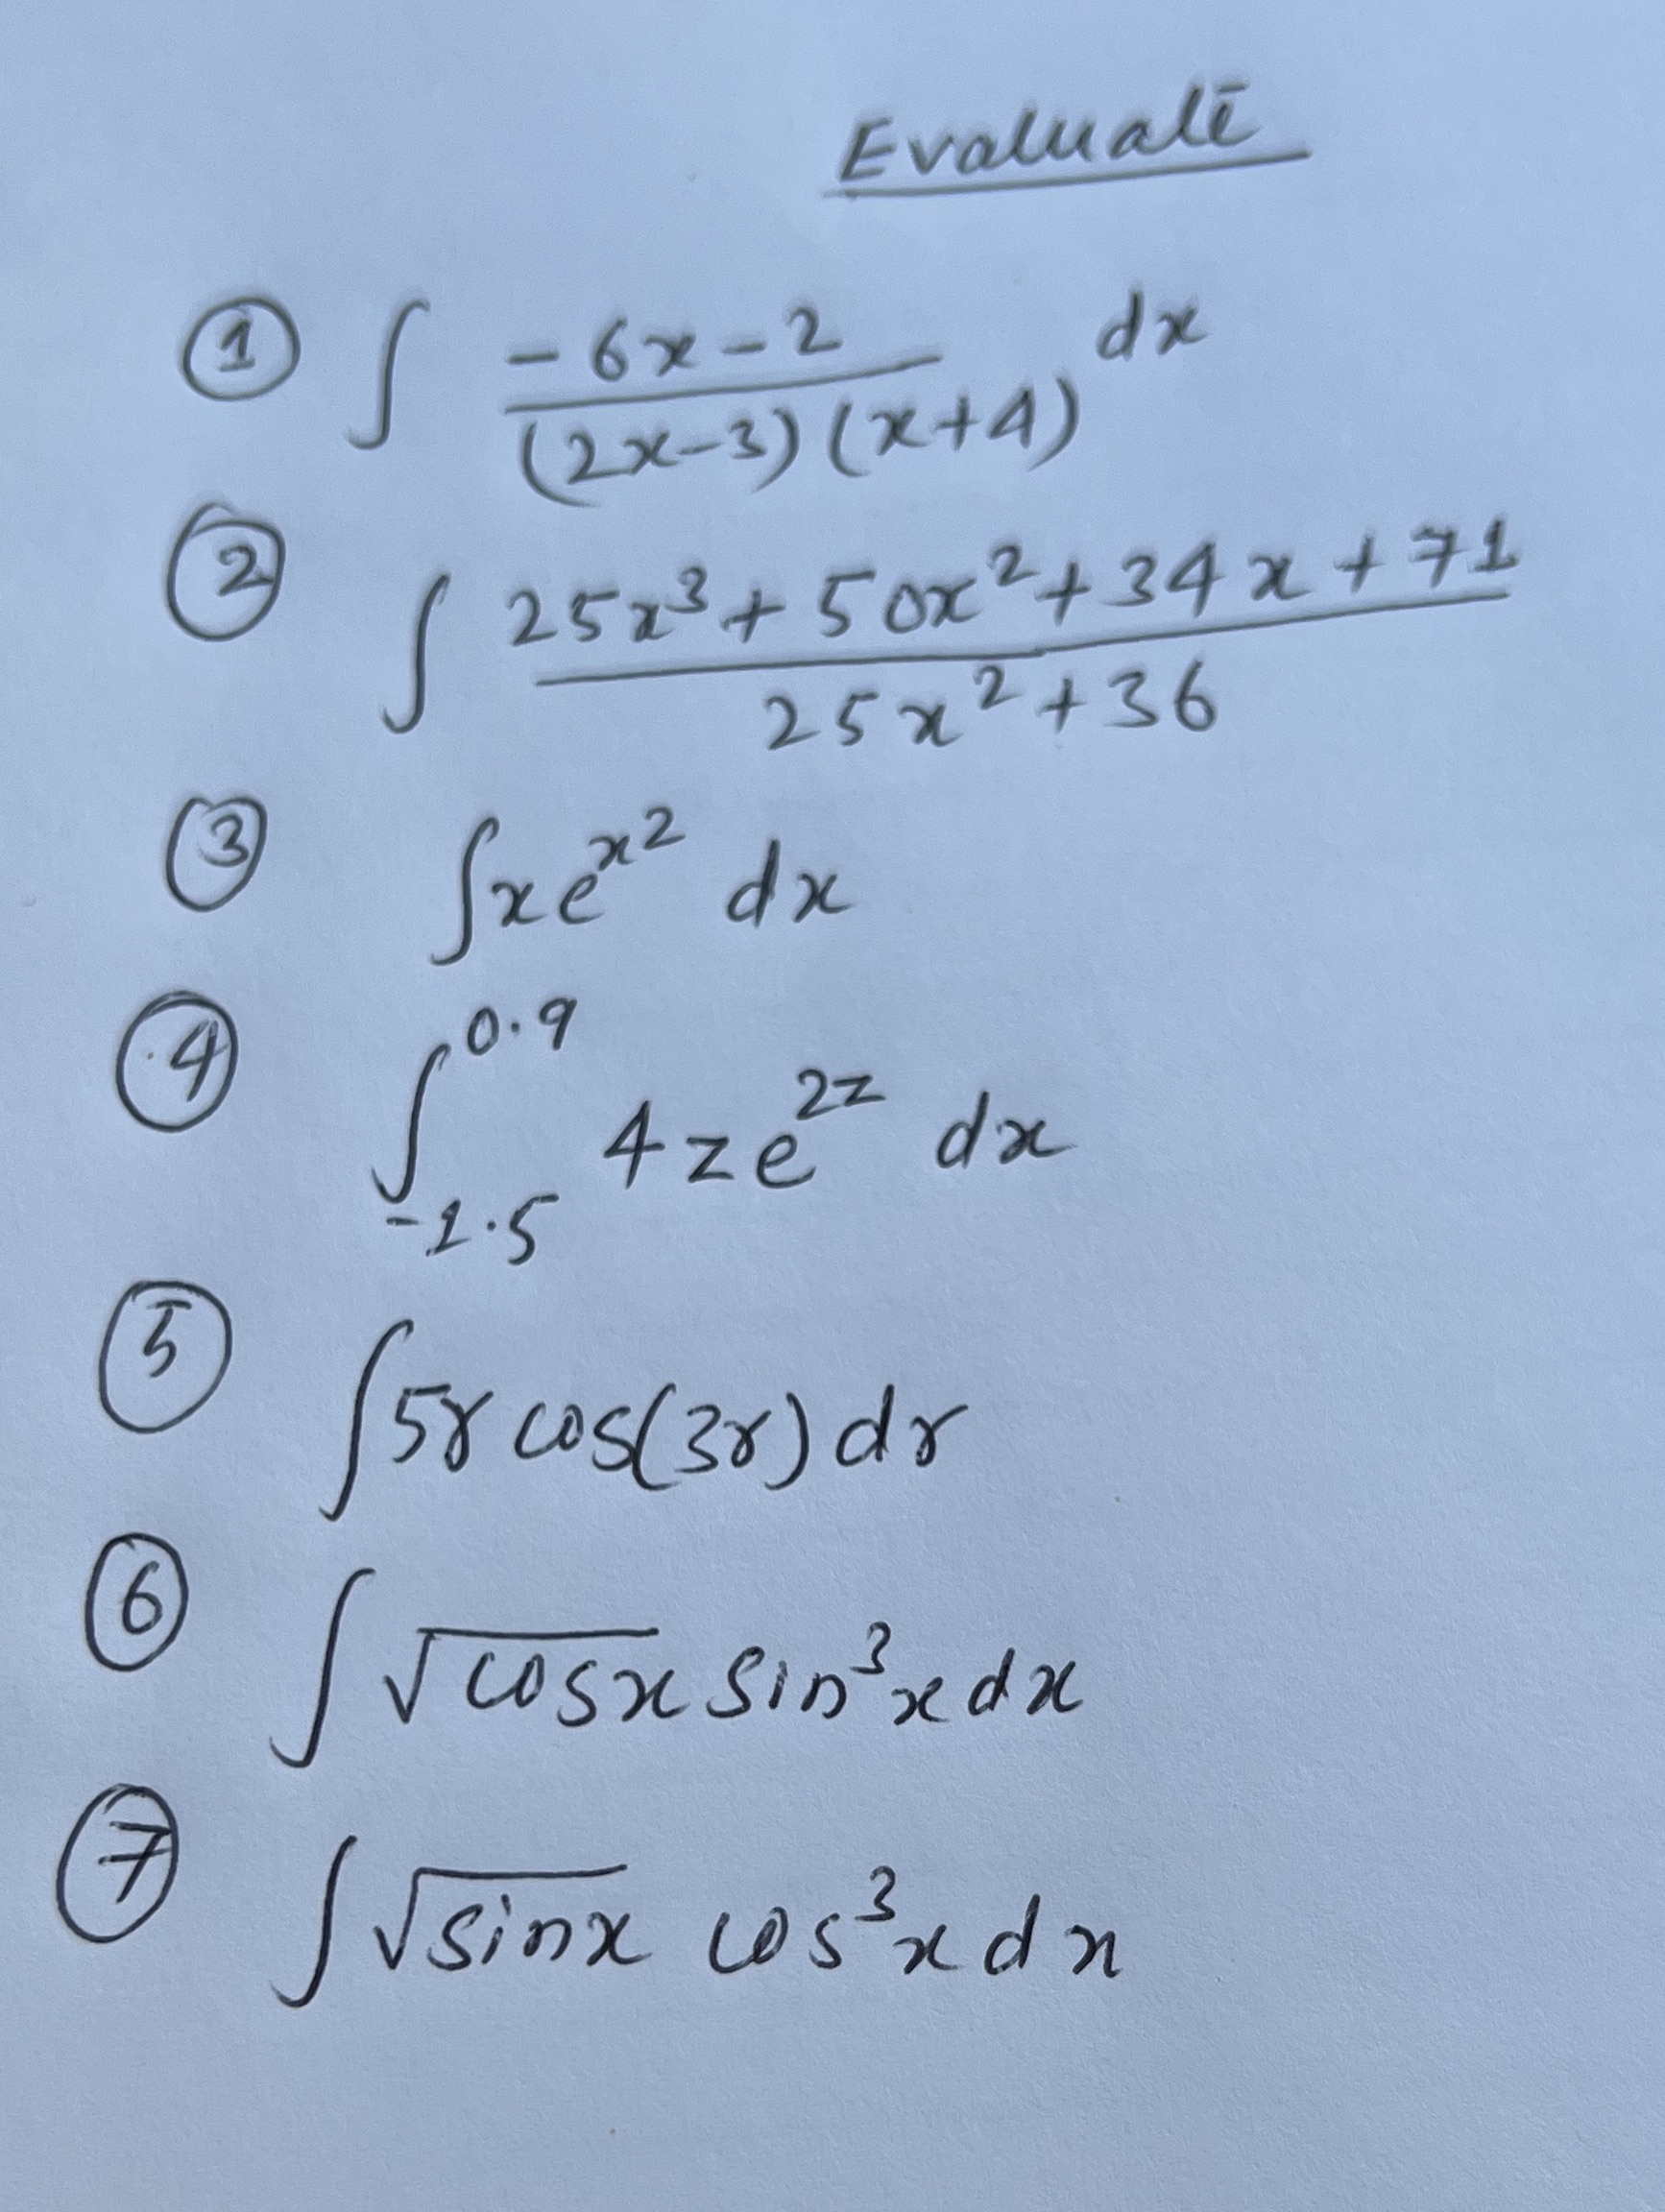 Evaluate
① ∫ (-6x-2)/((2x-3)(x+4)) dx
② ∫ (25x³+50x²+34x+71)/(25x²+36)
③ ∫xe^(x²) dx
④ ∫_(-1.5)^(0.9) 4ze^(2z) dx
⑤ ∫5r cos(3r) dr
⑥ ∫√(cosx) sin³x dx
⑦ ∫√(sinx) cos³x dx